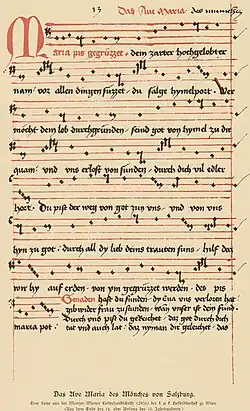 13 Das Ave Maria des munnches
Maria pis gegrüzzet · dein zarter hochgelobter
nam · vor allen dingen süzzet · du sälge hymelport · Wer
möcht dein lob durchgründen · seind got von hymel zu dir
quam · vnd vns erlost von sunden · durch dich vil edler
hort · Du pist der weg von got zu vns · vnd von vns
hyn zu got · durch all dy lieb deins trauten suns · hilf daz
wir hy auf erden · von ym gegrüzet werden · des pis
Genaden hast du funden · dy Eua vns verlozen hat
gib wider frau zu stunden ·
Durch vns pist du gesuchet · daz got durch dich
maria pot · tat vnd auch lat · daz nyman dir geleichet · das
Das Ave Maria des Mönches von Salzburg.
Eine Seite aus der Mondsee-Wiener Liederhandschrift (2856) der k. u. k. Hofbibliothek zu Wien
(Aus dem Ende des 14. oder Anfang des 15. Jahrhunderts)